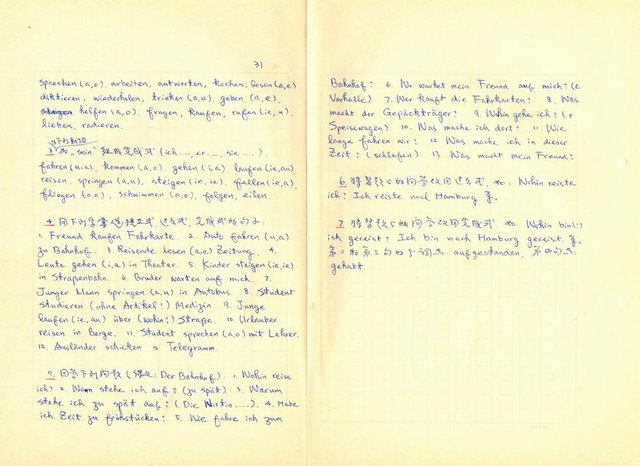 31
sprechen (a,o), arbeiten, antworten, kochen, lesen (a,e)
diktieren, wiederholen, trinken (a,u), geben (a,e),
helfen (a,o), fragen, kaufen, rufen (ie,u),
lieben, radieren.
"sein" (ich ...., er ...., sie ....)
fahren (u,a), kommen (a,o), gehen (i,a), laufen (ie,au)
reisen, springen (a,u), steigen (ie,ie), fallen (ie,a),
fliegen (o,o), schwimmen (a,o), folgen, eilen.
4.
1. Freund kaufen Fahrkarte. 2. Auto fahren (u,a)
zu Bahnhof. 3. Reisende lesen (a,e) Zeitung. 4.
Leute gehen (i,a) in Theater. 5. Kinder steigen (ie,ie)
in Straßenbahn. 6. Bruder warten auf mich. 7.
Junger Mann springen (a,u) in Autobus. 8. Student
studieren (ohne Artikel!) Medizin. 9. Junge
laufen (ie,au) über (wohin?) Straße. 10. Urlauber
reisen in Berge. 11. Student sprechen (a,o) mit Lehrer.
12. Ausländer schicken Telegramm.
5. 回答下列问题 (课文: Der Bahnhof). 1. Wohin reise
ich? 2. Wann stehe ich auf? (zu spät). 3. Warum
stehe ich zu spät auf? (Die Wirtin ....). 4. Habe
ich Zeit zu frühstücken? 5. Wie fahre ich zum
Bahnhof? 6. Wo wartet mein Freund auf mich? (e
Vorhalle). 7. Wer kauft die Fahrkarten? 8. Was
macht der Gepäckträger? 9. Wohin gehe ich? (r
Speisewagen) 10. Was mache ich dort? 11. Wie
lange fahren wir? 12. Was mache ich in dieser
Zeit? (schlafen). 13. Was macht mein Freund?
6. Wohin reiste
ich? Ich reiste nach Hamburg
7. Wohin bin
ich gereist? Ich bin nach Hamburg gereist.
aufgestanden,
gehabt